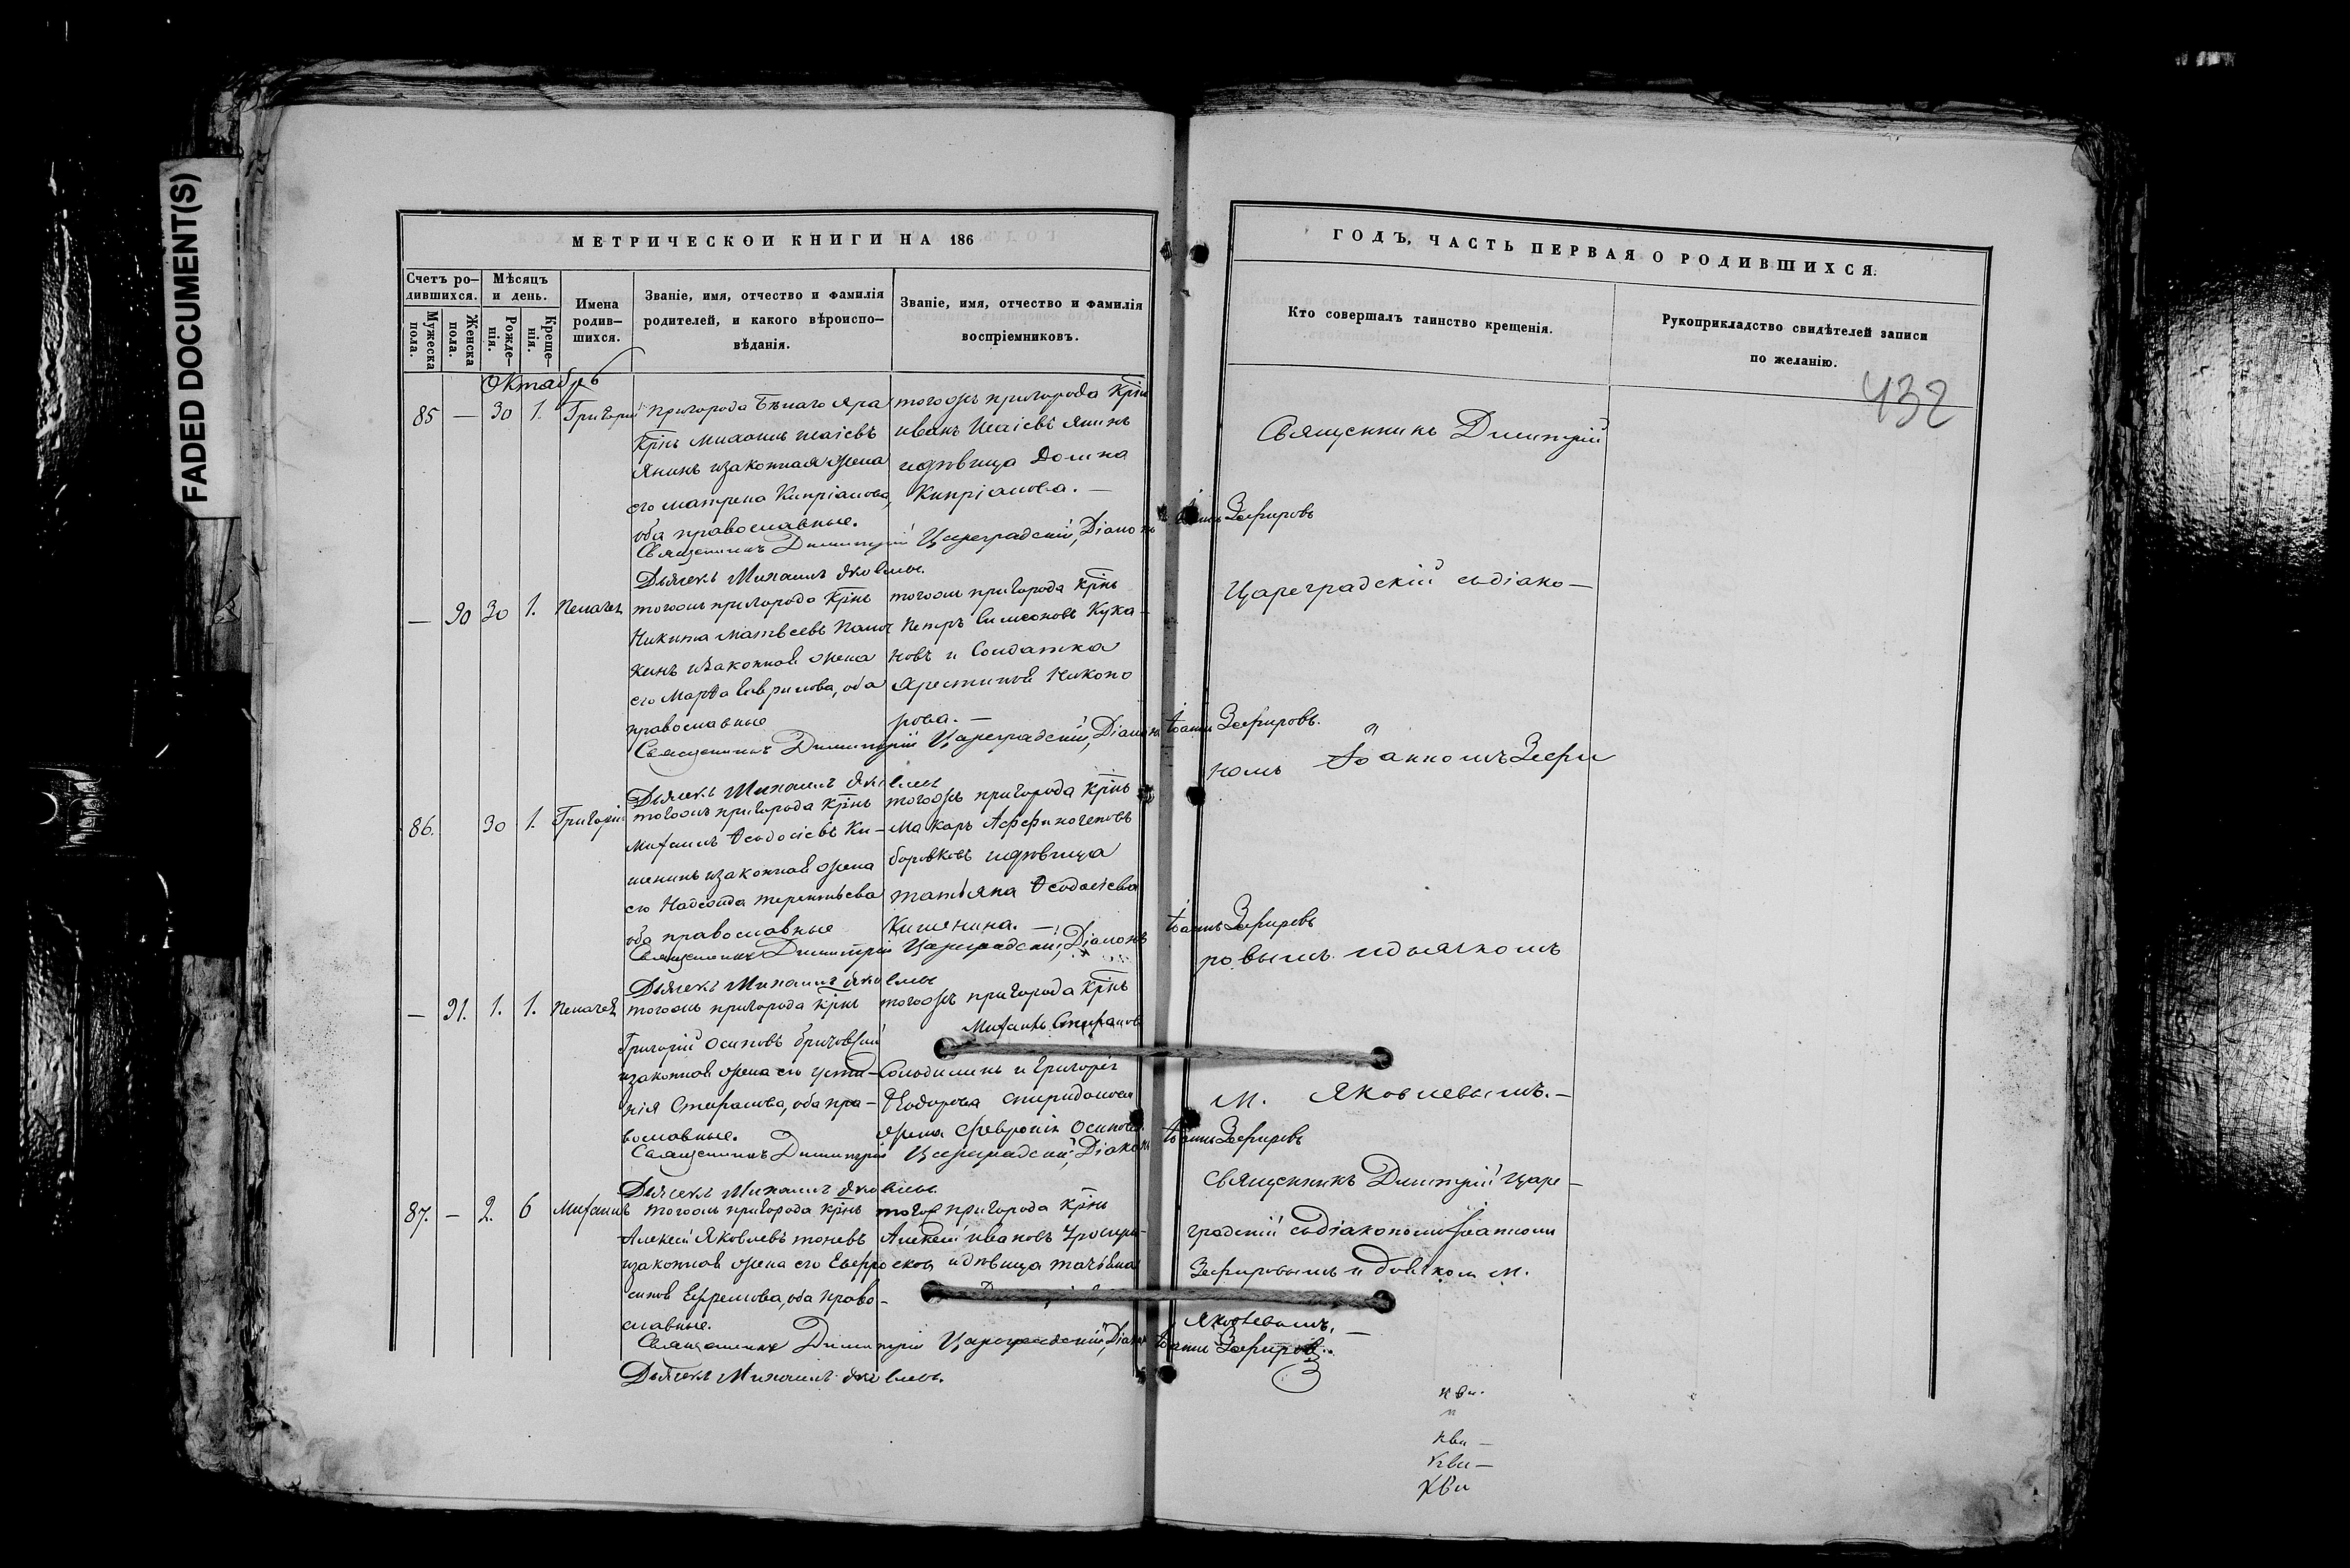 FADED DOCUMENT(S)
МЕТРИЧЕСКОИ КНИГИ НА 186
Счетъ ро-
дившихся.
Мужеска
пола.
Женска
пола.
Мѣсяцъ
и день.
Рожде-
нія.
Креще-
нія.
Имена
родив-
шихся.
Званіе, имя, отчество и фамилія
родителей, и какого вѣроиспо-
вѣданія.
Званіе, имя, отчество и фамилія
воспріемниковъ.
Октябрь
85 — 30 1. Григорій
Пригорода Бѣлаго Яра
Крнъ Михаилъ Исаіевъ
Янинъ изаконная жена
его Матрена Кипріанова,
оба православные.
тогожъ пригорода Крнъ
Иванъ Исаіевъ Янинъ
идѣвица Домна
Кипріанова. —
Священникъ Димитрій Цареградскій, Діаконъ Іоаннъ Зефировъ
Дьячекъ Михаилъ Яковлевъ.
— 90 30 1. Пелагея
тогожъ пригорода Крнъ
Никита Матвеевъ
кинъ изаконная жена
его Марѳа Гаврилова, оба
православные
тогожъ пригорода Крнъ
Петръ Симеоновъ Кука-
новъ и Солдатка
Христиния Никано
рова. —
Священникъ Димитрій Цареградскій, Діаконъ Іоаннъ Зефировъ.
Дьячекъ Михаилъ Яковлевъ
86. 30 1. Григорій
тогожъ пригорода Крнъ
Михаилъ Ѳеодосіевъ Ки-
шенинъ изаконная жена
его Надежда Терентьева
оба православные
тогожъ пригорода Крнъ
Макаръ Афѳиногеновъ
боровковъ идѣвица
Татьяна Ѳеодосіева
Кишенина. —
Священникъ Димитрій Цареградскій, Діаконъ Іоаннъ Зефировъ
Дьячекъ Михаилъ Яковлевъ
— 91. 1. 1. Пелагея
тогожъ пригорода Крнъ
Григорій Осиповъ
изаконная жена его Усти-
нія Стефанова, оба пра-
вославные.
тогожъ пригорода Крнъ
Михаилъ Стефановъ
Солодилинъ и Григорія
Ѳеодорова Спиридонова
жена Февронія Осипова.
Священникъ Димитрій Цареградскій, Діаконъ Іоаннъ Зефировъ
Дьячекъ Михаилъ Яковлевъ.
87. — 2. 6 Михаилъ
тогожъ пригорода Крнъ
Алексій Яковлевъ
изаконная жена его Евфро
синія Ефремова, оба право-
славные.
тогож пригорода Крнъ
Алексій Ивановъ
идѣвица Татьяна
Священникъ Димитрій Цареградскій, Діаконъ Іоаннъ Зефировъ.
Дьячекъ Михаилъ Яковлевъ.
ГОДЪ, ЧАСТЬ ПЕРВАЯ О РОДИВШИХСЯ.
Кто совершалъ таинство крещенія.
Рукоприкладство свидѣтелей записи
по желанію.
432
Священникъ Димитрій
Цареградскій съдіако-
номъ Іоанномъ Зефи
ровымъ идьячкомъ
М. Яковлевымъ. —
Священникъ Димитрій Царе-
градскій съдіакономъ Іоанномъ
Зефировымъ и дьячкомъ М.
Яковлевымъ. —